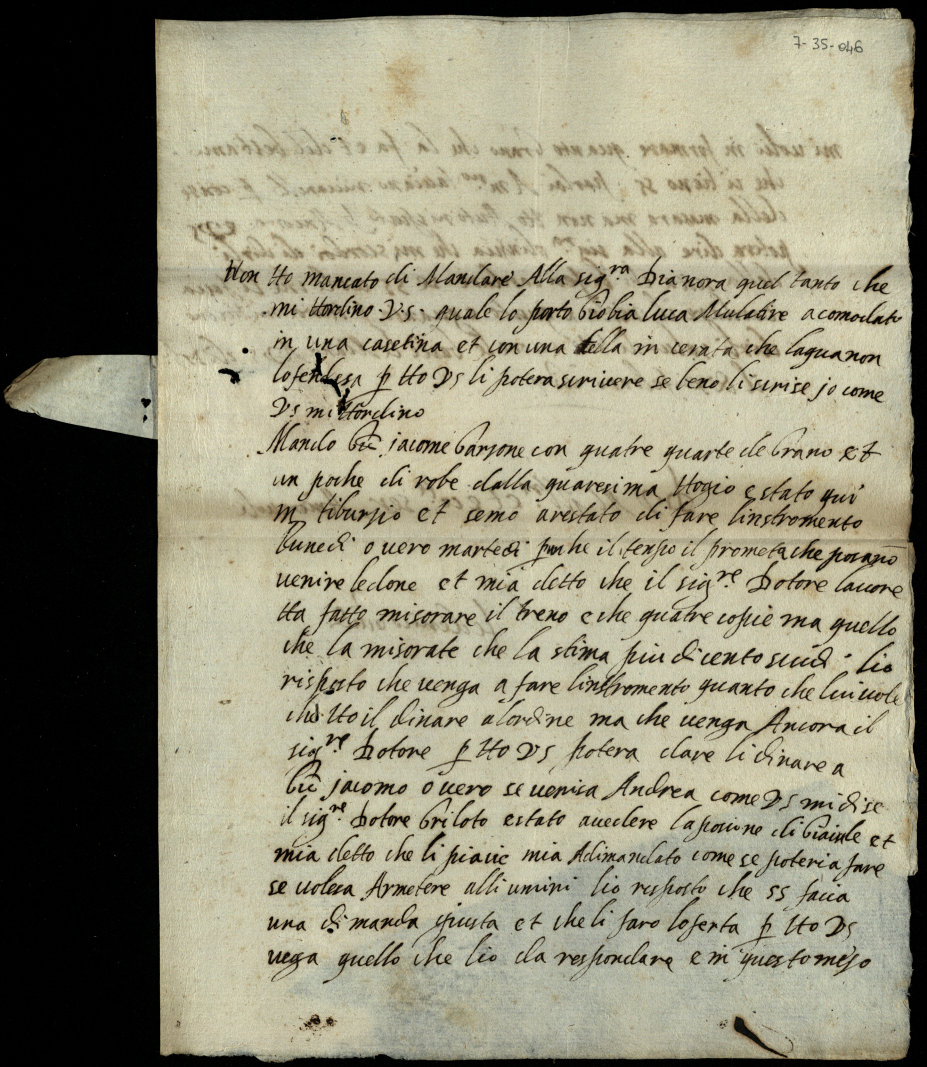 7-35-046
Non Ho mancato di Mandare Alla sig.ra Dianora quel tanto che
mi Hordino V.S. quale lo porto Giobia luca Mulatire acomodato
in una casetina et con una tella in cerata che laqua non
lofendesa p Ho VS li potera scrivere se bene li scrise jo come
VS mi Hordino
Mando jacome Garzone con quatre quarte de Grano et
un poche di robe dalla quaresima Hogio estato qui
m tiburzio et semo arestato di fare linstromento
lunedi o vero martedi il tenpo il prometa che posano
venire le done et mia detto che il sig.re Dotore lavore
Ha fatto misorare il treno e che quatre copie ma quello
che la misorate che la stima piu di cento scudi lio
risposto che venga a fare linstromento quanto che lui vole
che Ho il dinare alordine ma che venga Ancora il
sig.re Dotore p Ho VS potera dare li dinare a
jacomo o vero se venisa Andrea come VS mi dise
il sig.re Dotore Griloto estato avedere laposione di et
mia detto che li piacie mia Adimandato come se poteria fare
se volesa Armetere alli umini lio risposto che SS facia
una dimanda giusta et che li faro loferta p Ho VS
vega quello che lio da respondare e in questo mezo